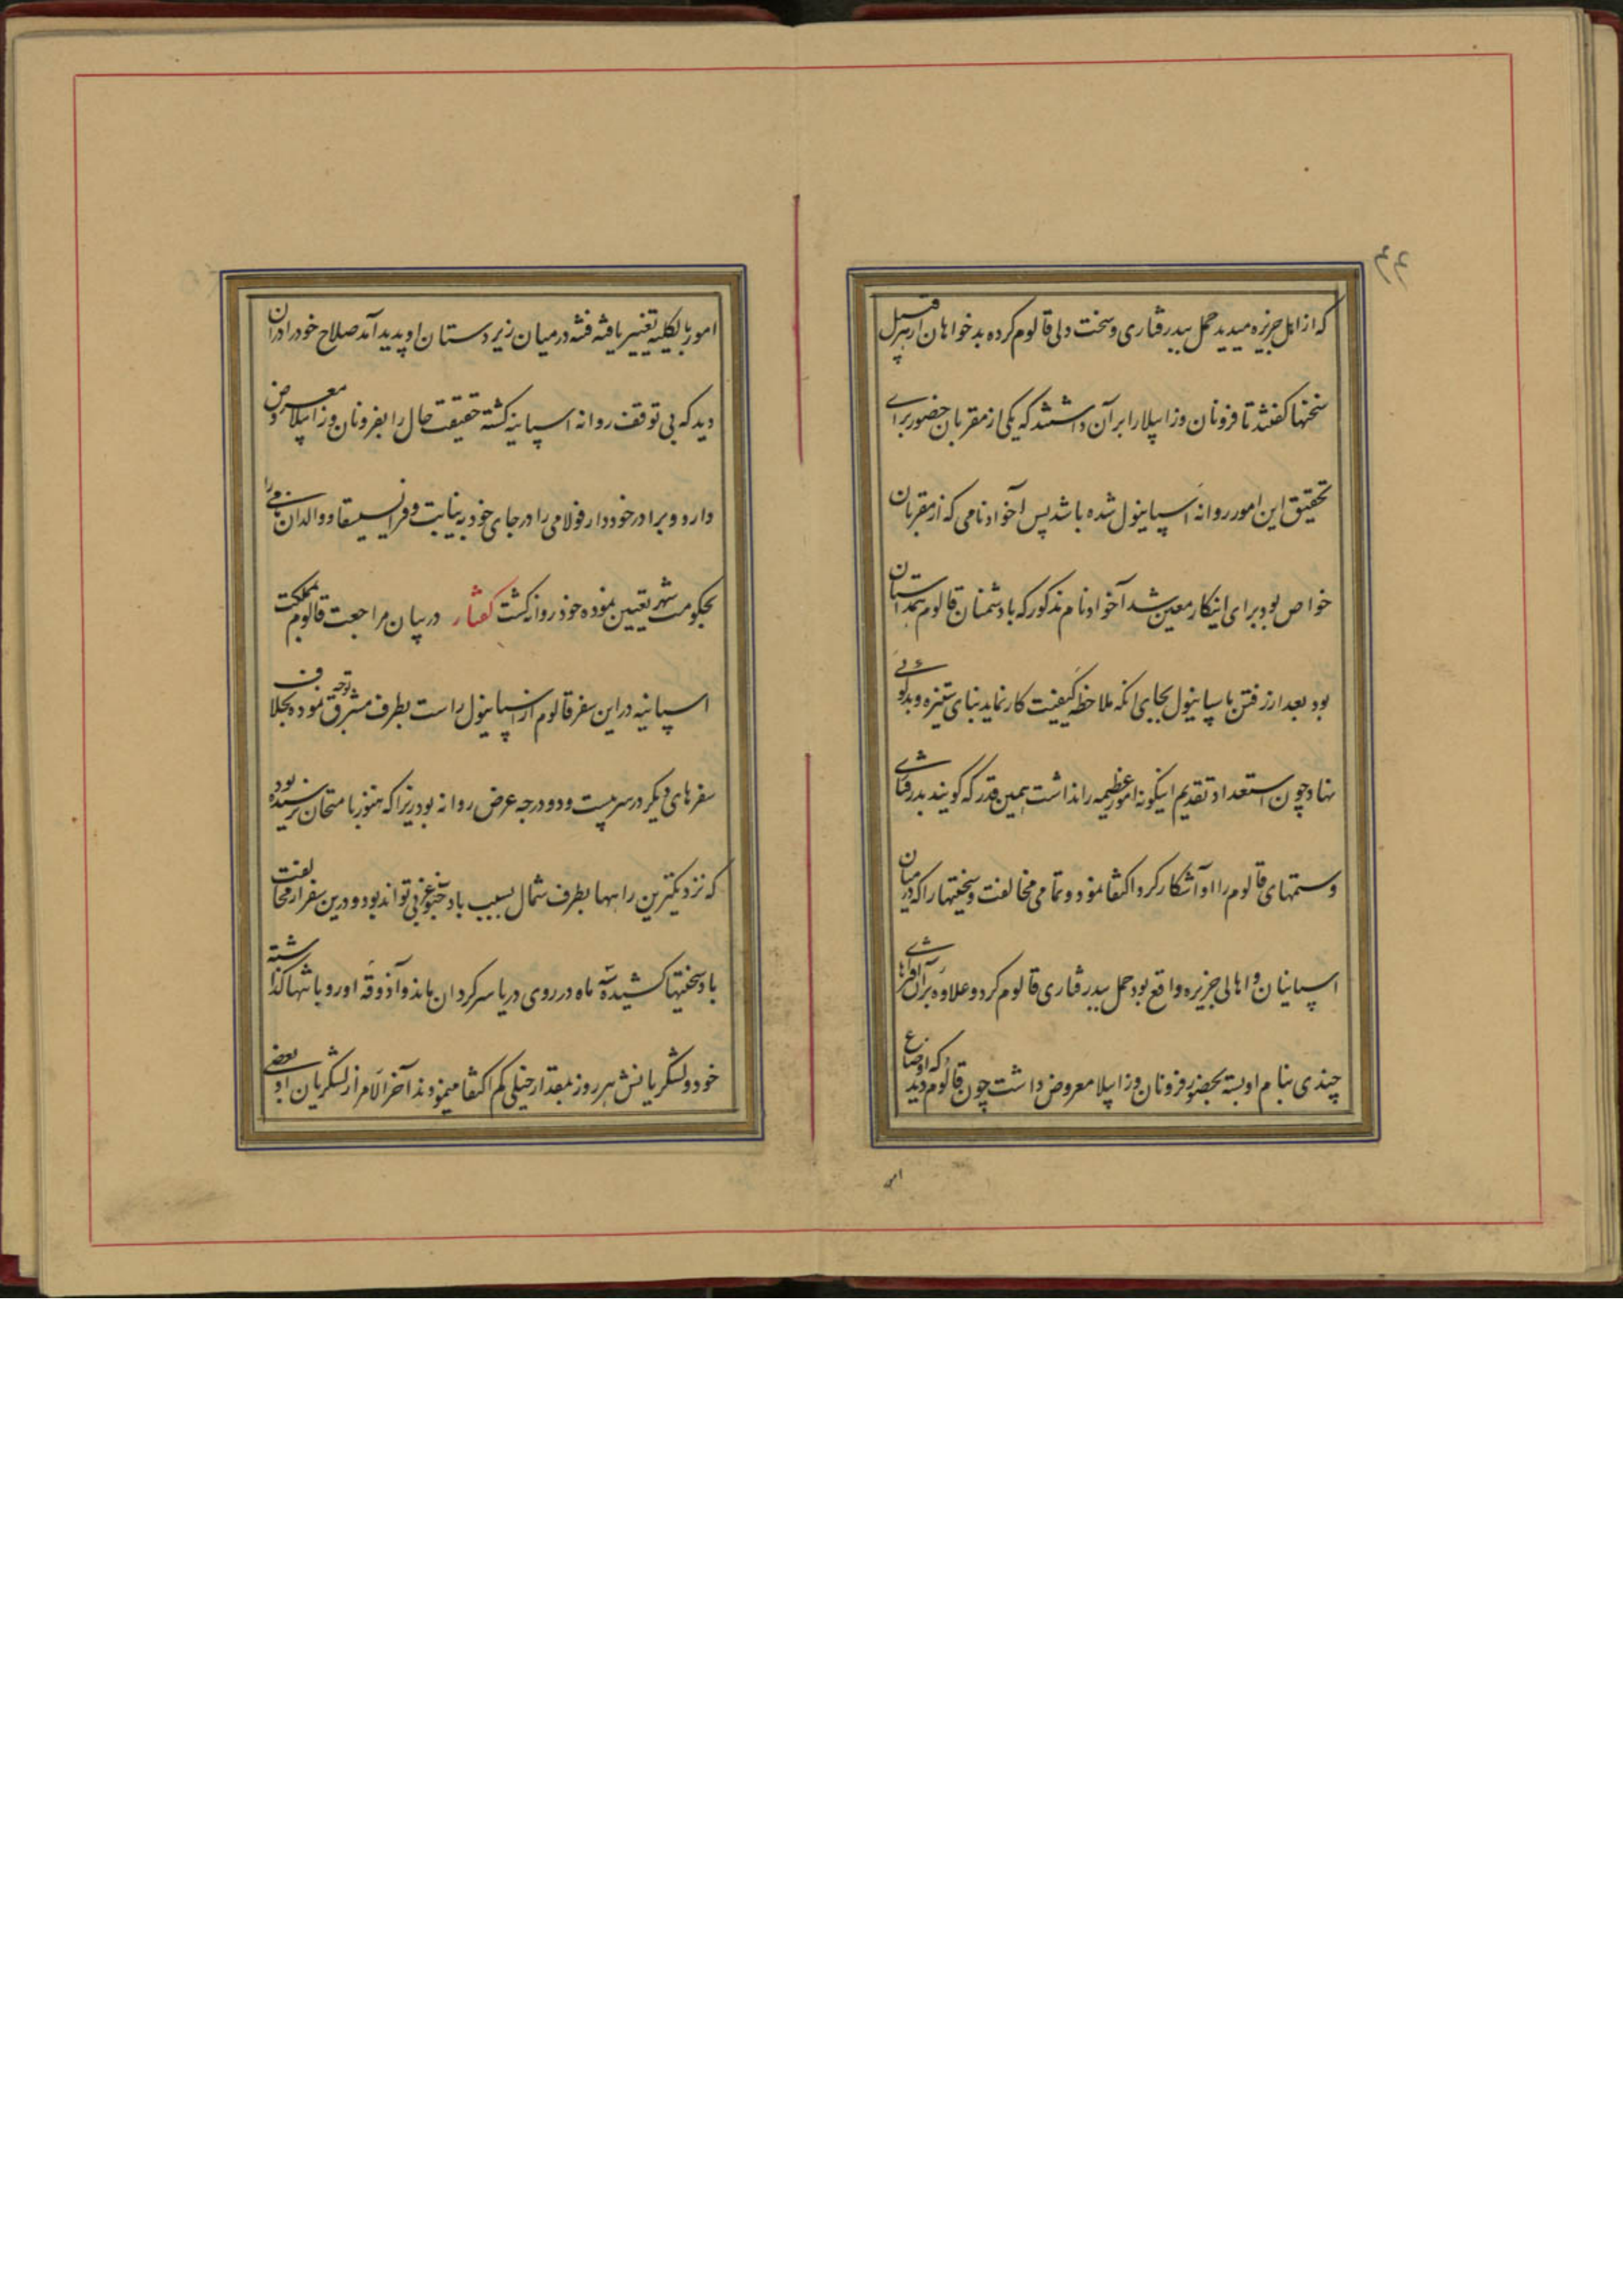 که از اهل جزیره میدید حمل ببدرفتاری و سخت دلی قالوم کرده بدخواهان از هر قبیل
سخنها کفتند تا فرونان وزابیلا را بر آن داشتند که یکی از مقربان حضور برای
تحقیق این امور روانه اسپانیول شده باشد پس آخوادنامی که از مقربان
خواص بود برای اینکار معین شد آخوادنام مذکور که با دشمنان قالوم همداستان
بود بعد از رفتن باسپانیول بجای انکه ملاحظه کیفیت کار نماید بنای ستیزه و بدکوئی
نهاد چون استعداد تقدیم اینکونه امور عظیمه را نداشت بهمین قدر که کویند بدرفتاری
و ستمهای قالوم را او آشکار کرد اکتفا نمود و تمامی مخالفت و سختیها را که در میان
اسپانیان و اهالی جزیره واقع بود حمل ببدرفتاری قالوم کرد و علاوه بر آن افتراهای
چندی بنام او بسته بحضور فرونان وزابیلا معروض داشت چون قالوم دید که اوضاع
امور بالکلیه تغییر یافته فتنه در میان زیردستان او پدید آمد صلاح خود را در آن
دید که بی توقف روانه اسپانیه کشته حقیقت حال را بفرونان وزابیلا معروض
دارد و برادر خود دارفولامی را در جای خود به نیابت و فرانسیسقا و والدان نامی را
بحکومت شهر تعیین نموده خود روانه کشت کفتار در بیان مراجعت قالوم بمملکت
اسپانیه در این سفر قالوم از اسپانیول راست بطرف مشرق توجه نموده بخلاف
سفرهای دیکر در سر بیست و دو درجه عرض روانه بود زیرا که هنوز بامتحان نرسیده بود
که نزدیکترین راهها بطرف شمال بسبب باد جنوب غربی تواند بود و درین سفر از مخالفت
باد سختیها کشیده سه ماه در روی دریا سرکردان ماند و آذوقه او رو بانتها کذاشته
خود و لشکریانش هر روز بمقدار خیلی کم اکتفا مینمودند آخر الامر از لشکریان او بعضی